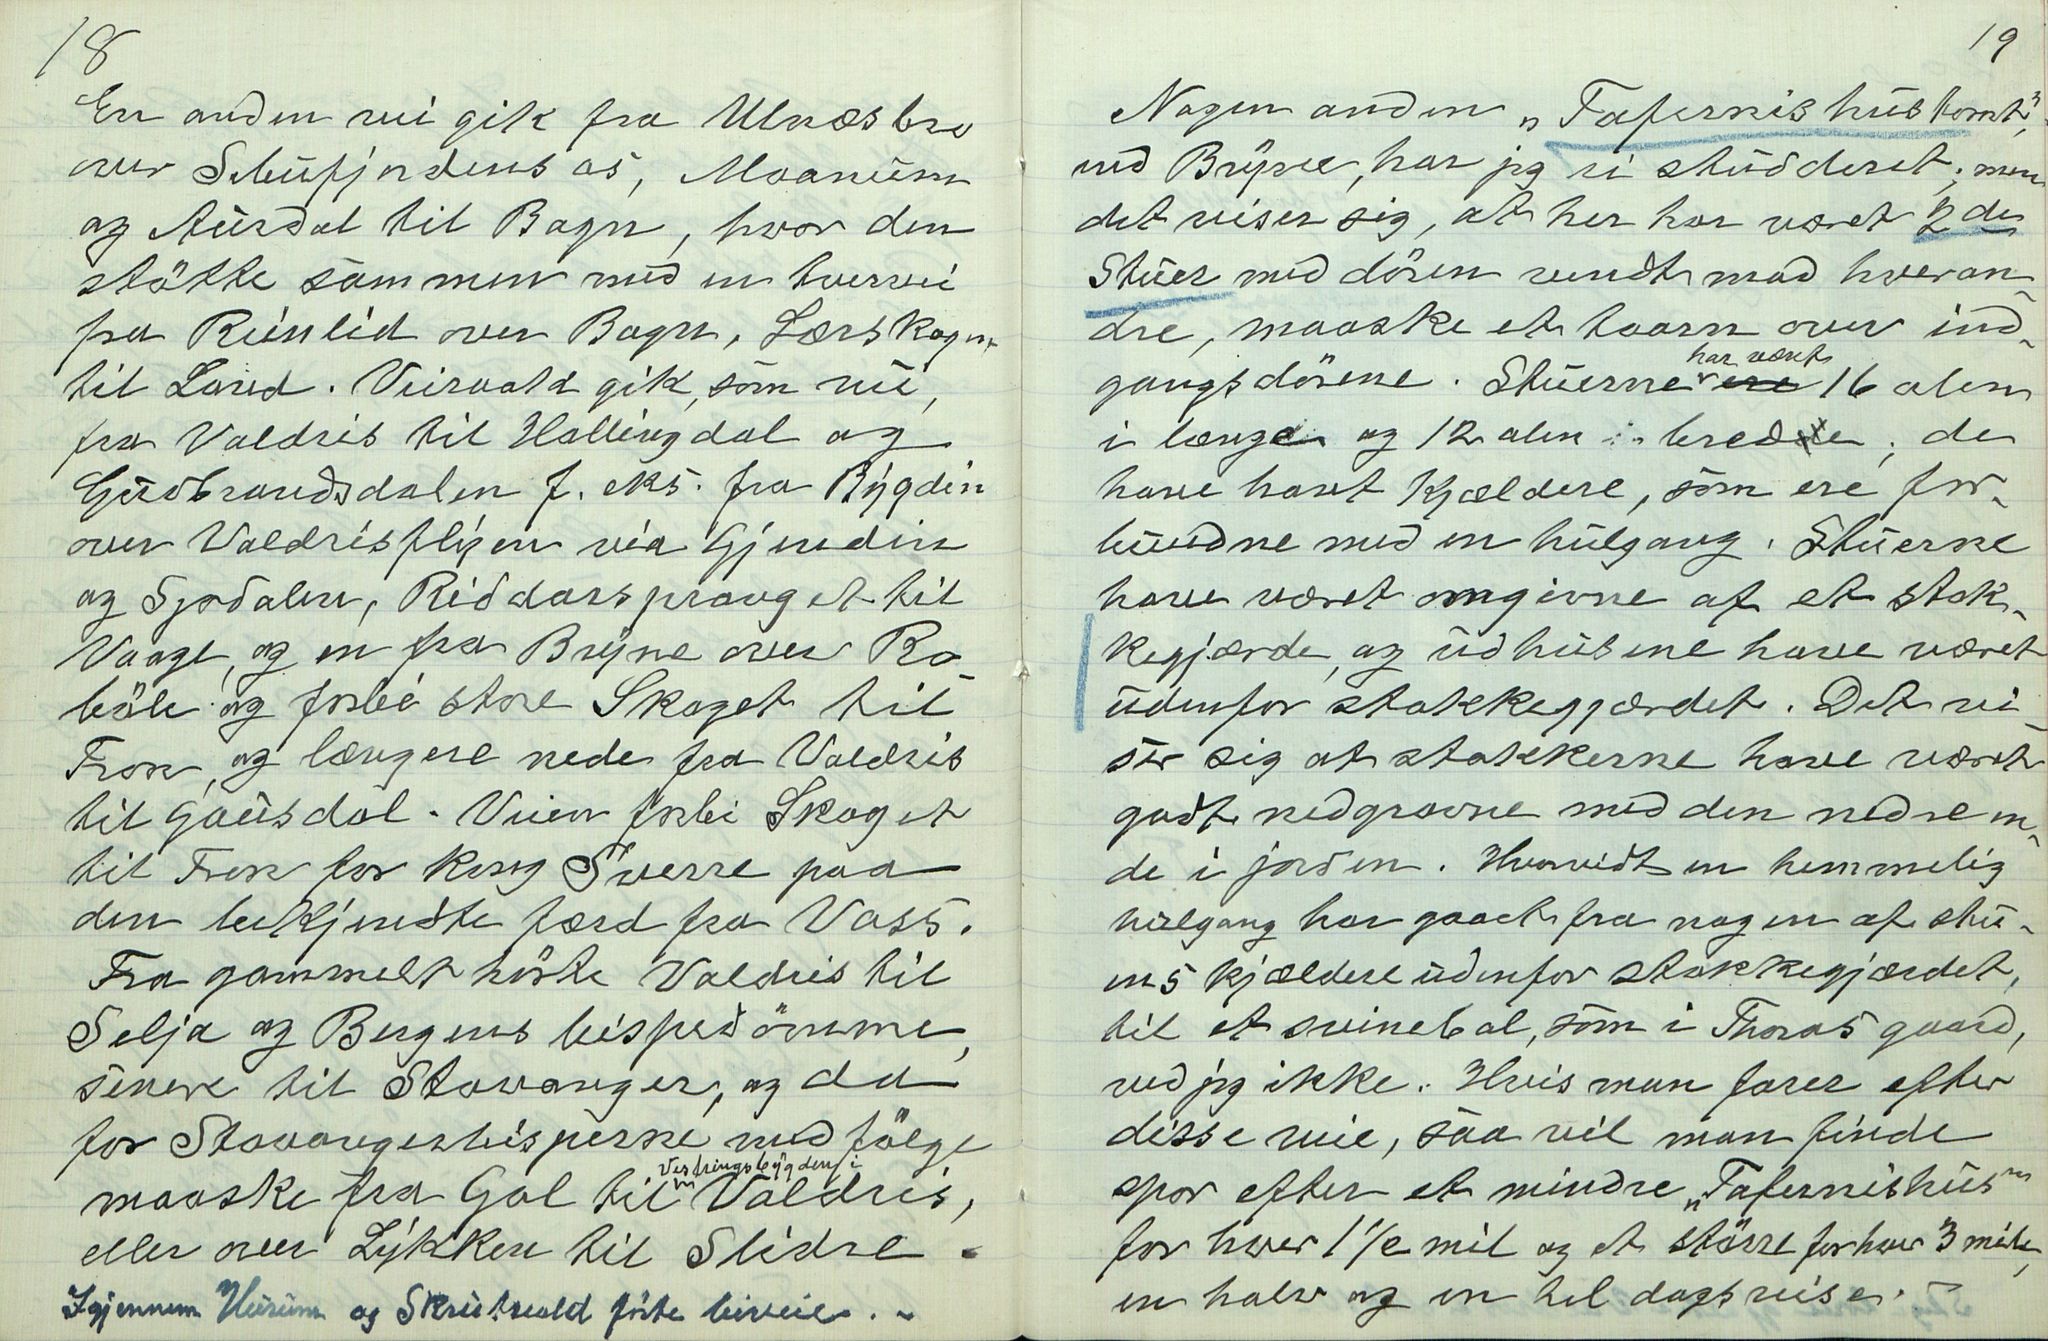 18
En anden vei gik fra Ulnæsbro
over Sebufjordens ås, Moanum
og Aurdal til Bagn, hvor den
stötte sammen med en tvervei
fra Reinlid over Bagn, Lærskogen
til Land. Veirvald gik, som nu,
fra Valdris til Hallingdal og
Gudbrandsdalen f. eks. fra Bygdin
over Valdrisflyen via Gjendin
og Sjodalen, Riddarspranget til
Vaage, og en fra Bryne over Ro-
böle og forbi store Skaget til
Fron, og længere nede fra Valdris
til Gausdal. Veien forbi Skaget
til Fron for kong Sverre paa
den bekjendte færd fra Voss.
Fra gammelt hörte Valdris til
Selja og Bergens bispedömme,
senere til Stavanger, og da
for Stavangerbisperne med fölge
maaske fra Gol til Vestringsbygden i Valdris,
eller over Lykken til Slidre.
Igjennem Hurum og Skrutvold förte biveie. -
19
Nogen anden „Tafernishustomt",
ved Bryne, har jeg ei studderet; men
det viser sig, at her har været 2 de
Stuer med dören vendt mod hveran-
dre, maaske et taarn over ind-
gangsdörene. Stuerne har vært ere 16 alen
i længe og 12 alen i bredde; de
have havt kjældere, som ere for-
bundne med en hulgang. Stuerne
have været omgivne af et stok-
kegjærde, og udhusene have været
udenfor stokkegjærdet. Det vi-
ser sig at stokkerne have været
godt nedgravne med den nedre en-
de i jorden. Hvorvidt en hemmelig
hulgang har gaaet fra nogen af stu-
ens kjældere udenfor stokkegjærdet,
til et svinebol, som i Thoras gaard,
ved jeg ikke. Hvis man farer efter
disse veie, saa vil man finde
spor efter et mindre „Tafernishus"
for hver 1 1/2 mil og et större for hver 3 mile,
en halv og en hel dagsreise. -